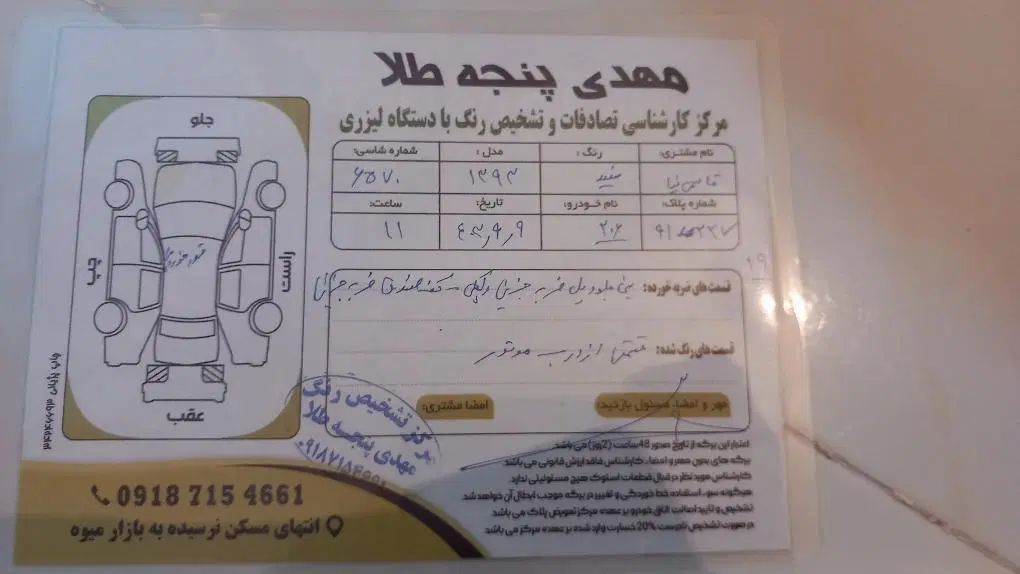 مهدی پنجه طلا
مرکز کارشناسی تصادفات و تشخیص رنگ با دستگاه لیزری
نام مشتری: رنگ: مدل: شماره شاسی:
قاسمی نیا سفید ۱۳۹۳ ۶۵۷۰
شماره پلاک: نام خودرو: تاریخ: ساعت:
۲۰۶ ۱۱
جلو
چپ
راست
عقب
قسمت های ضربه خورده: ضربه جزئی ضربه جزئی
قسمت های رنگ شده: قسمتی از درب موتور
مهر و امضاء مسئول بازدید: امضا مشتری:
مرکز تشخیص رنگ
مهدی پنجه طلا
اعتبار این برگه از تاریخ صدور 48 ساعت (2 روز) می باشد.
برگه های بدون مهر و امضاء کارشناس فاقد ارزش قانونی می باشد
کارشناس مورد نظر در قبال قطعات استوک هیچ مسئولیتی ندارد.
هرگونه سوء استفاده خط خوردگی و تغییر در برگه موجب ابطال آن خواهد شد.
تشخیص و تایید اصالت اتاق خودرو بر عهده مرکز تعویض پلاک می باشد
در صورت تشخیص نادرست 20% خسارت وارد شده بر عهده مرکز می باشد.
0918 715 4661
انتهای مسکن نرسیده به بازار میوه